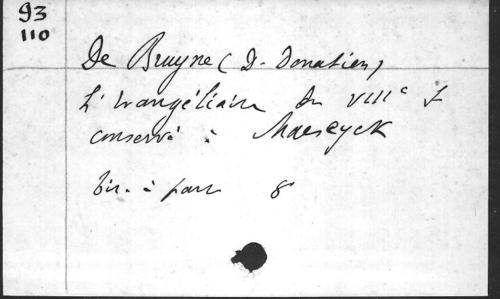 93
110
De Bruyne (D. Donatien)
L'évangéliaire du VIIIe s
conservé à Maeseyck
Tir. à part 8°